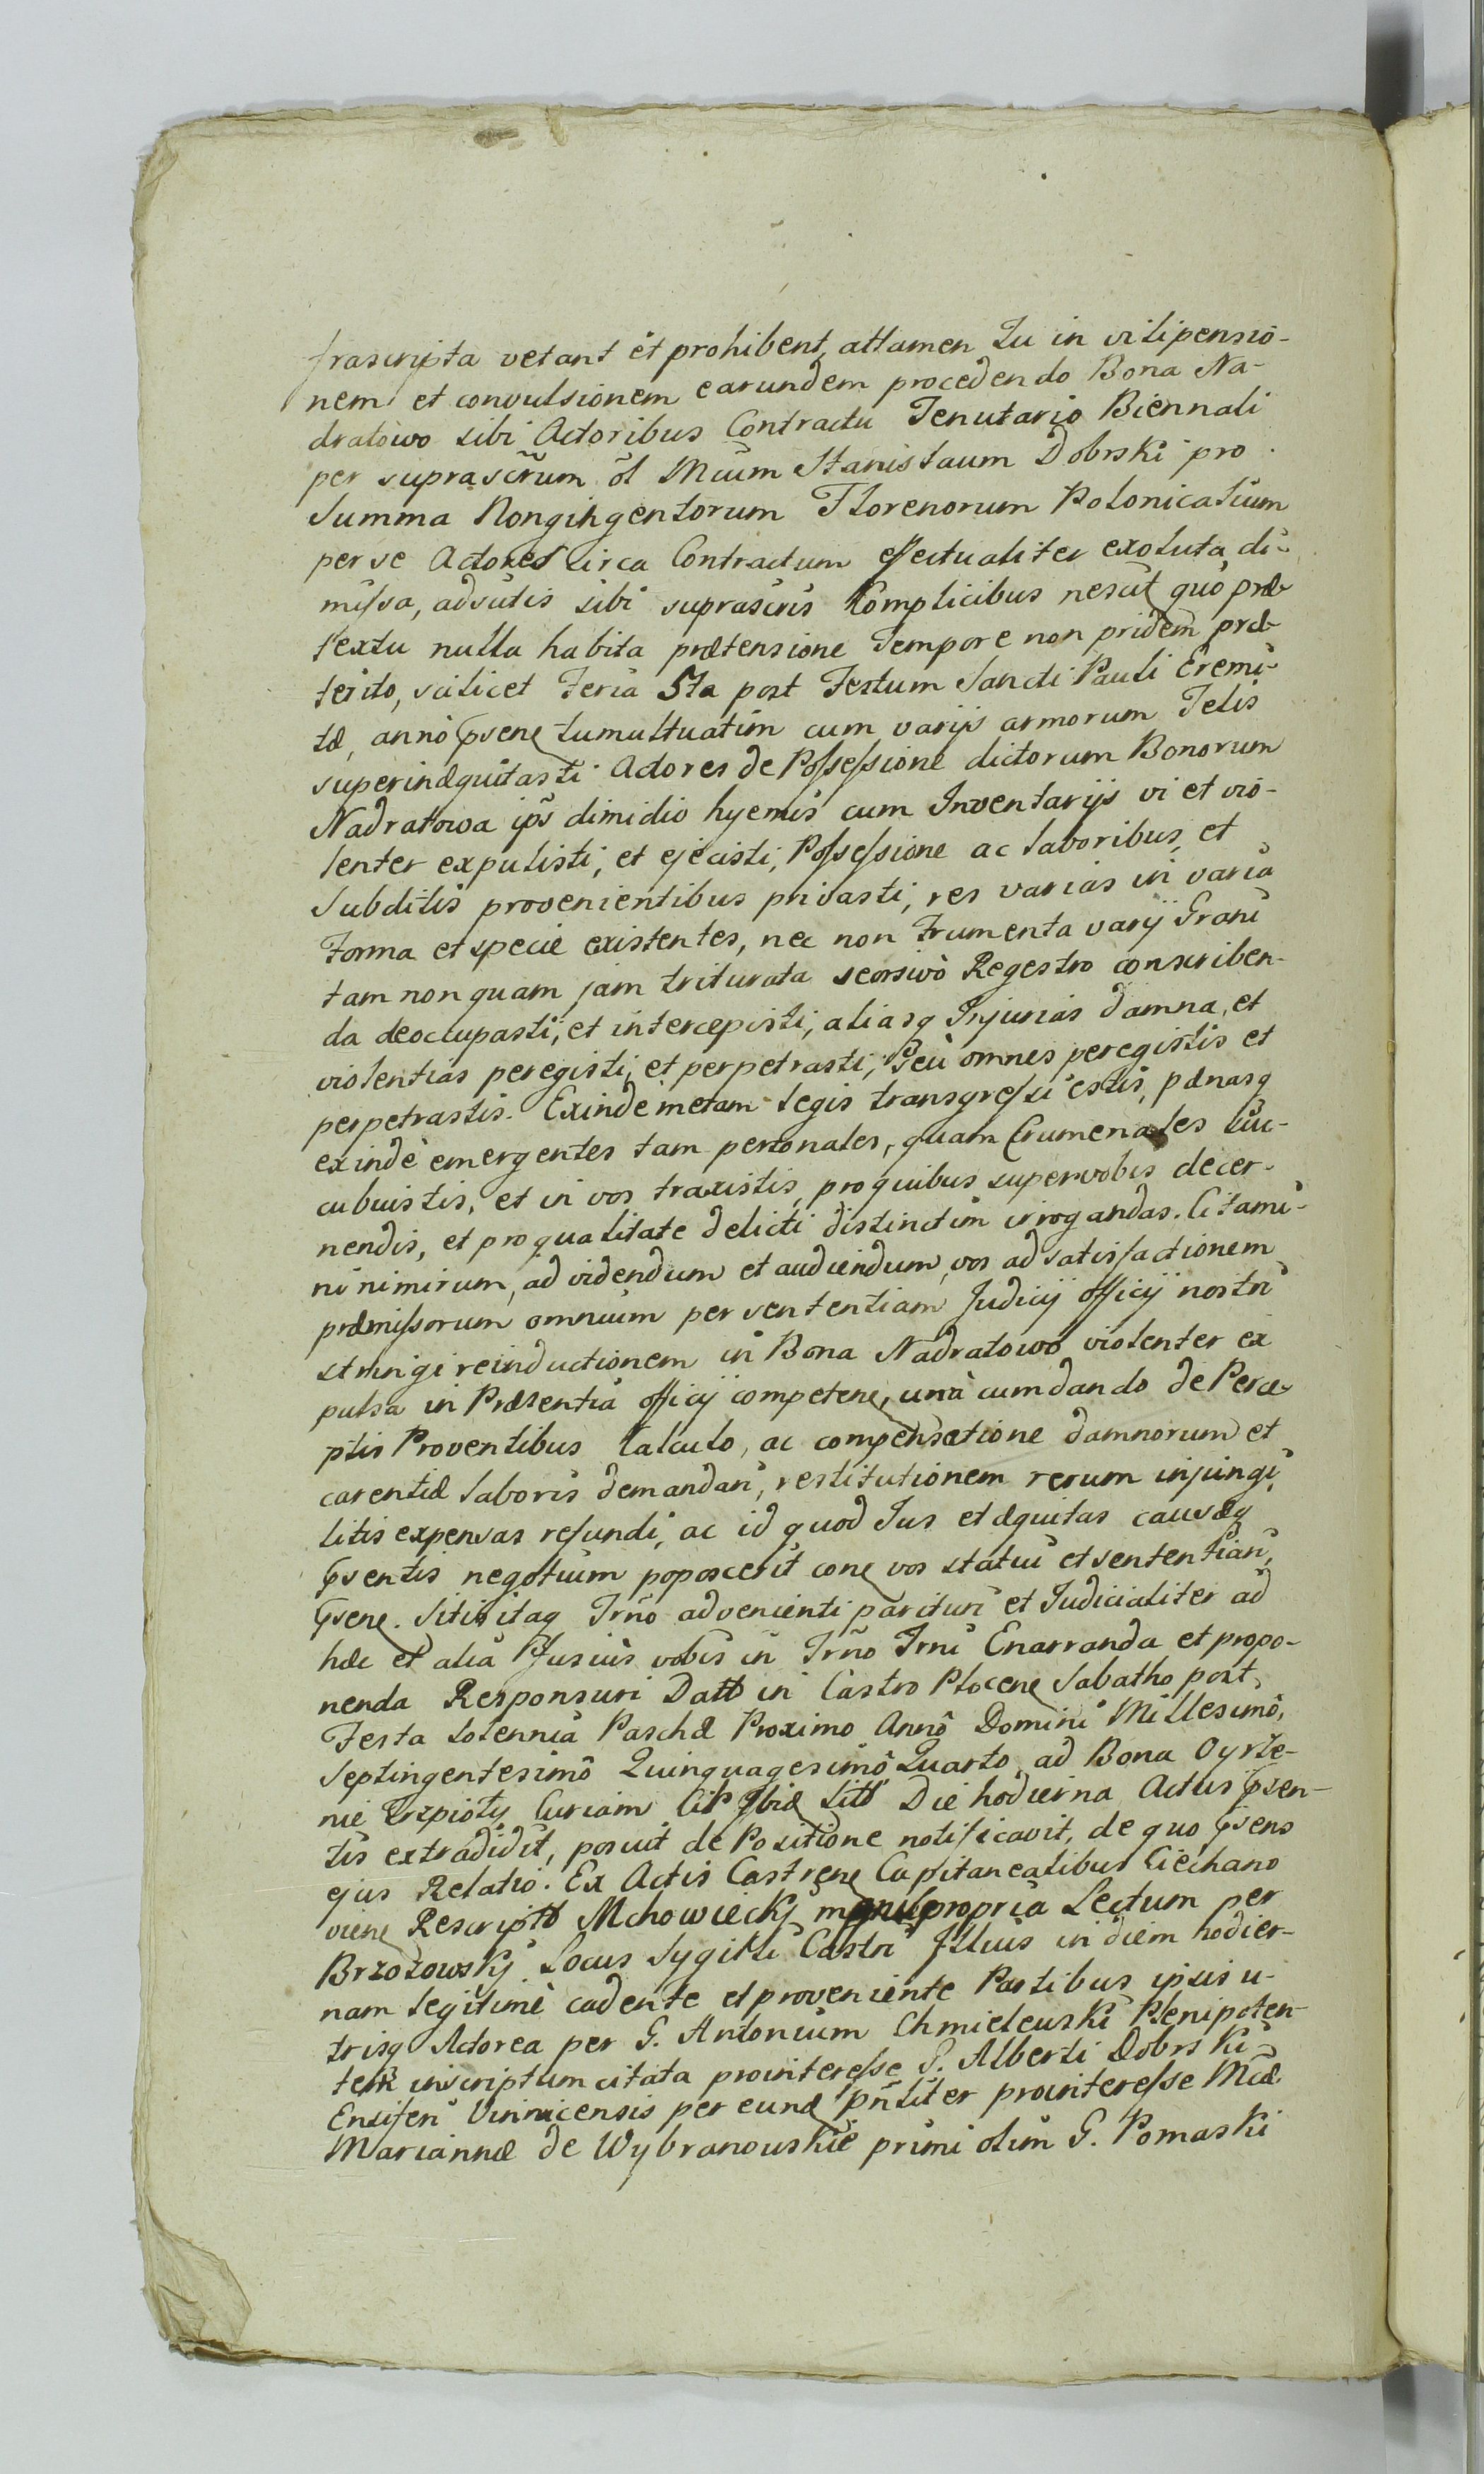 frascripta vetant et prohibent, attamen Tu in vilipensio-
nem et convulsionem earundem procedendo Bona Na-
dratowo sibi Actoribus Contractu Tenutario Biennali
per suprascrum ol Mcum Stanislaum Dobrski pro
Summa Nongingentorum Florenorum Polonicalium
per se Actores circa Contractum effectualiter exoluta di-
missa, adsutis sibi suprascris Complicibus nescit quo præ
textu nulla habita prætensione Tempore non pridem præ
terito, scilicet Feria 5ta post Festum Sancti Pauli Eremi-
tæ, anno psene tumultuatim cum varijs armorum Telis
superinæquitasti Actores de Possessione dictorum Bonorum
Nadratowa ips dimidio hyemis cum Inventarijs vi et vio-
lenter expulisti, et ejecisti, Possessione ac laboribus, et
Subditis provenientibus privasti, res varias in varia
Forma et specie existentes, nec non Frumenta varij Grani
tam non quam jam triturata seorsivo Regestro conscriben-
da deoccupasti, et intercepisti, aliasq Injurias damna, et
violentias peregisti, et perpetrasti, seu omnes peregistis et
perpetrastis. Exinde metam legis transgressi estis, pænasq
exinde emergentes tam personales, quam Crumenales suc-
cubuistis, et in vos traxistis, pro quibus super vobis decer-
nendis, et pro qualitate delicti distinctim irrogandas. Citami-
ni nimirum, ad videndum et audiendum, vos ad satisfactionem
præmissorum omnium per sententiam Judicij officij nostri
stringi reinductionem in Bona Nadratowo violenter ex
pulsa in Præsentia officij competene, una cum dando de Perce-
ptis Proventibus Calculo, ac compensatione damnorum et
carentiæ laboris demandari, restitutionem rerum injungi,
litis expensas refundi, ac id quod Jus et æquitas causæq
psentis negotium poposcerit cone vos statui et sententiari,
psene. Sitis itaq Trno advenienti parituri et Judicialiter ad
hæc et alia fusius vobis in Trno Trni Enarranda et propo-
nenda Responsuri Datt in Castro Plocene Sabatho post
Festa solennia Paschæ Proximo Anno Domini Millesimo,
Septingentesimo Quinquagesimo Quarto, ad Bona Oyrze-
nie Trzpioły Curiam Cit Ibid Sitt Die hodierna Actus psen-
tis extradidit, posuit de Positione notificavit, de quo psens
ejus Relatio. Ex Actis Castrene Capitanealibus Ciechano
viene Rescriptt Mchowiecky manu propria Lectum per
Brzozowsky Locus Sygilli Castri Illius in diem hodier-
nam legitime cadente et proveniente Partibus ipsis u-
trisq Actorea per G. Antonium Chmielewski Plenipoten-
tem inscriptum citata prointeresse G. Alberti Dobrski
Ensiferi Vinnicensis per eund pntliter prointeresse Mcæ
Mariannæ de Wybranouskie primi olim G. Pomaski